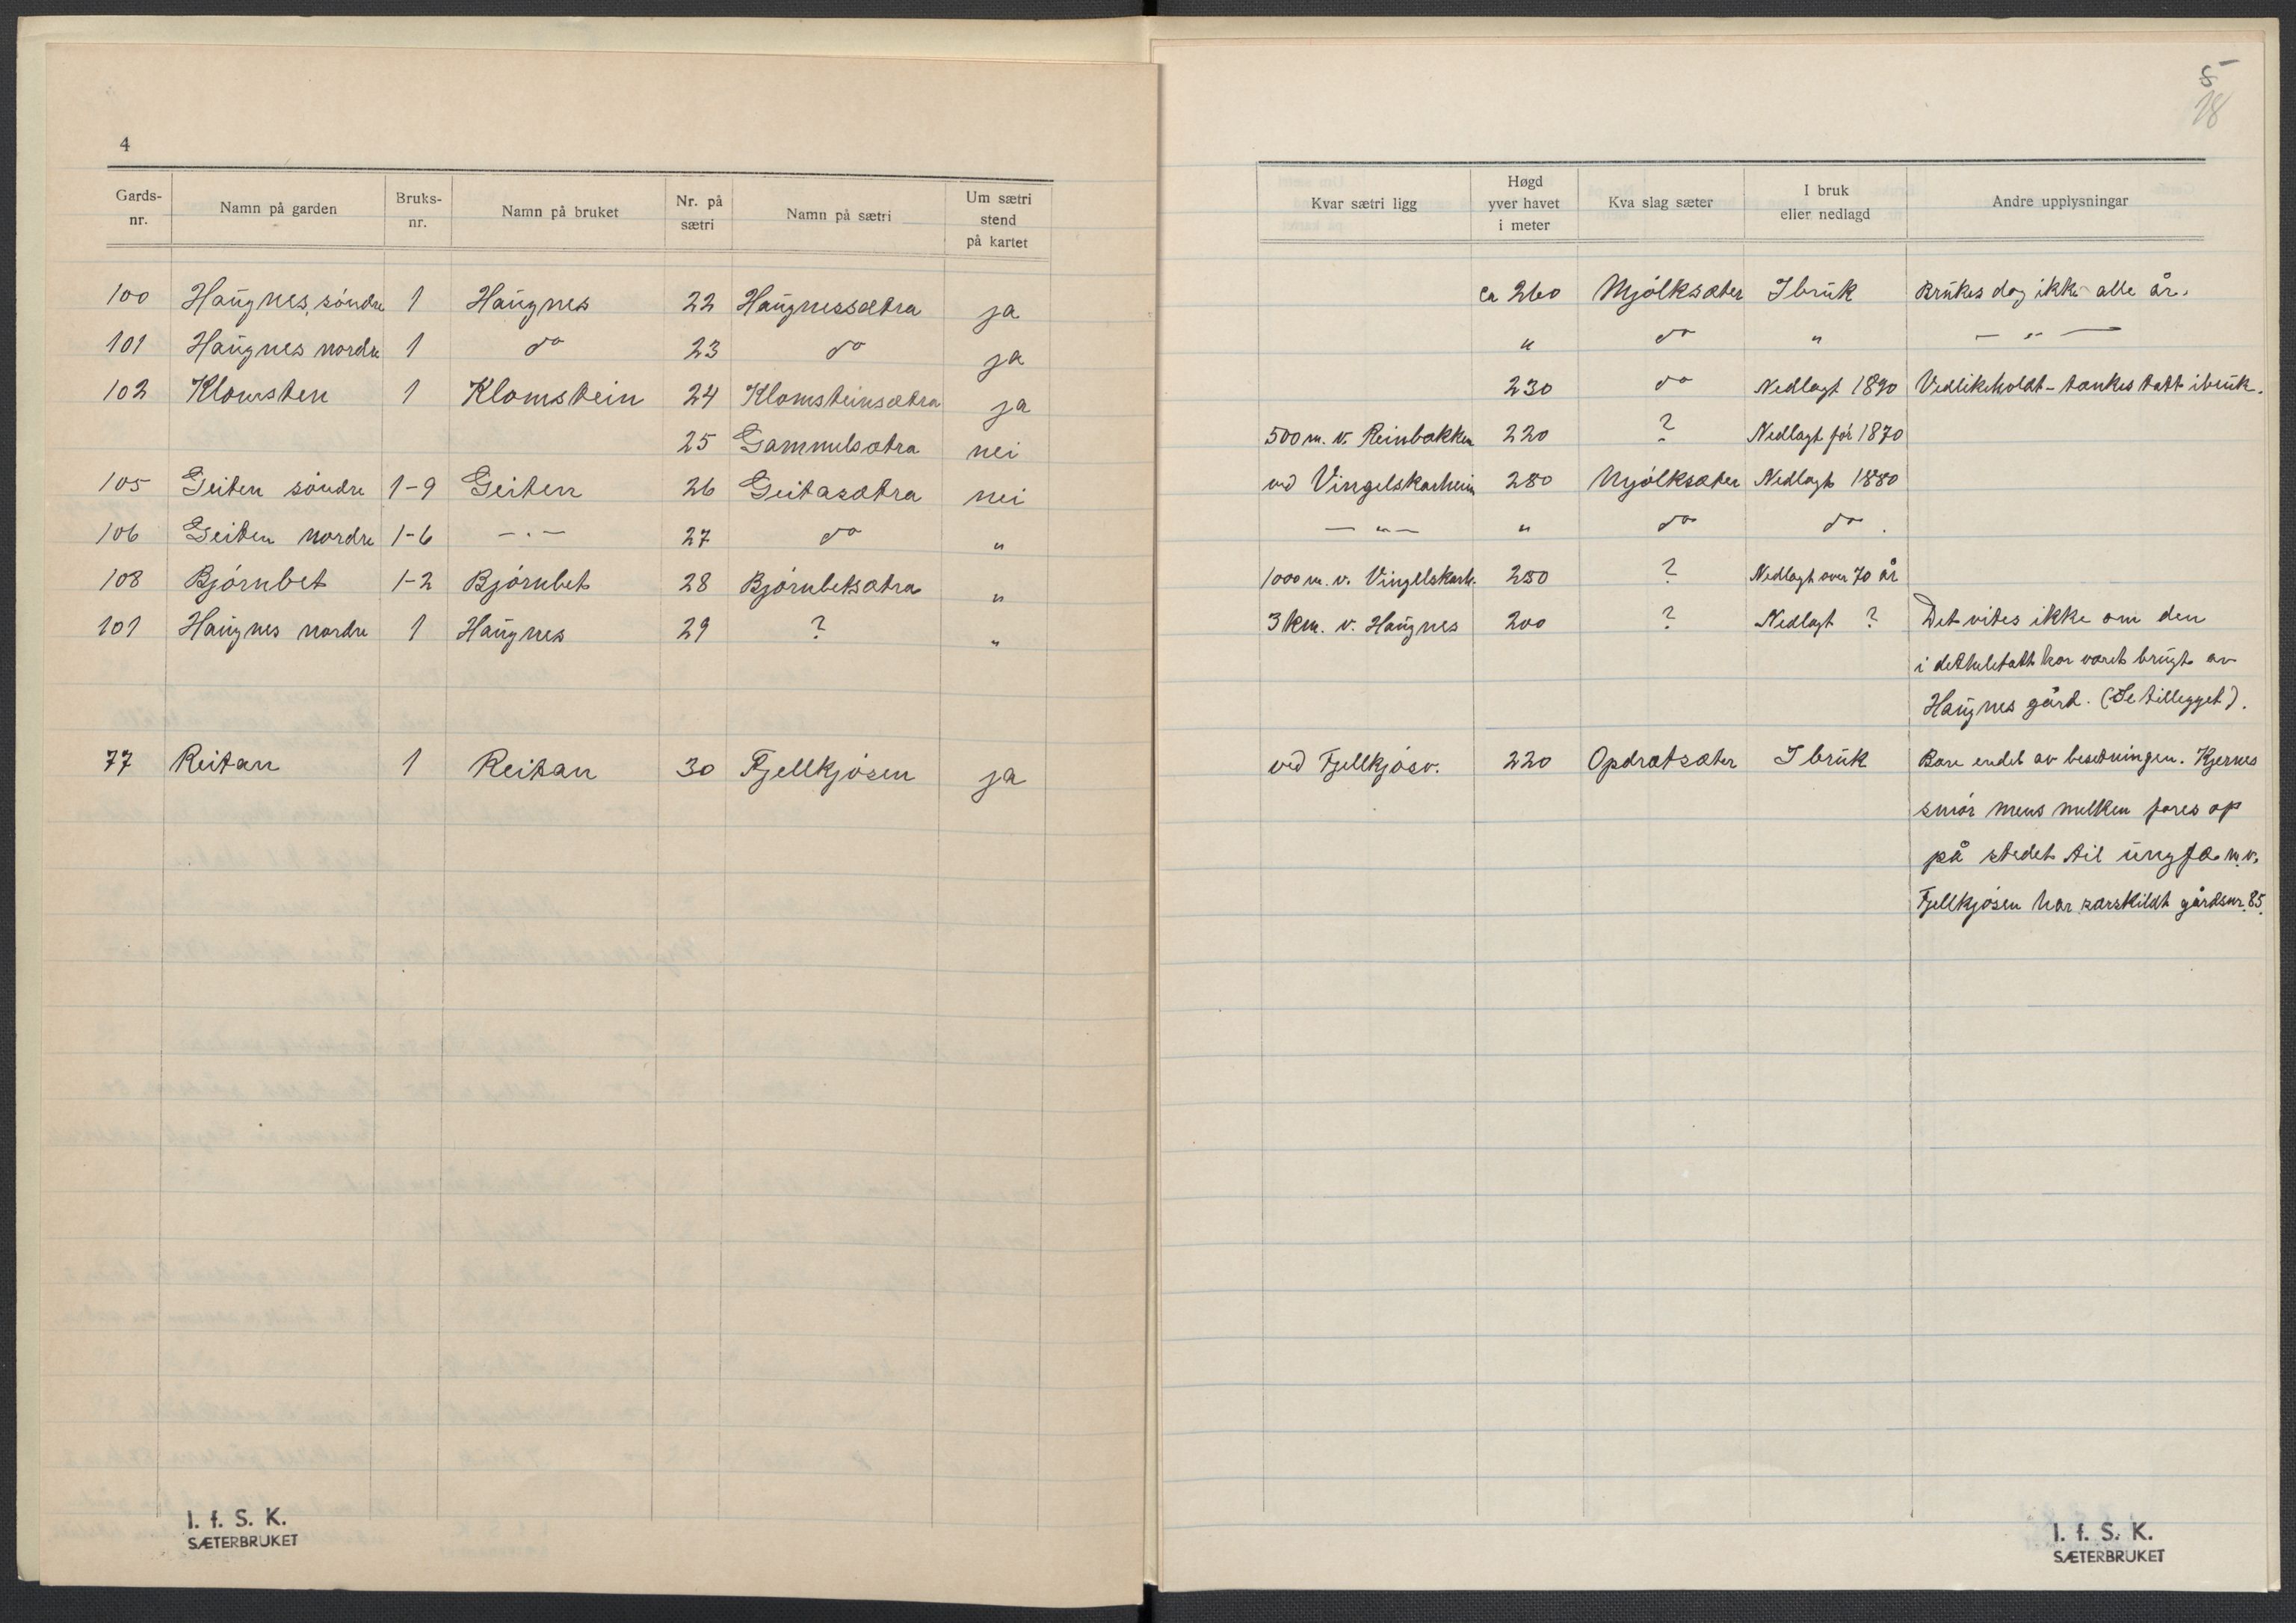 4
Gards-nr. Namn på garden Bruks-nr. Namn på bruket Nr. på sætri Namn på sætri Um sætri stend på kartet
100 Haugnes, søndre 1 Haugnes 22 Haugnessætra ja
101 Haugnes nordre 1 do 23 do ja
102 Klomsten 1 Klomstein 24 Klomsteinsætra ja
25 Gammelsætra nei
105 Geiten søndre 1-9 Geiten 26 Geitasætra nei
106 Geiten nordre 1-6 -"- 27 do "
108 Bjørnbet 1-2 Bjørnbet 28 Bjørnbetsætra "
101 Haugnes nordre 1 Haugnes 29 ? "
77 Reitan 1 Reitan 30 Fjellkjøsen ja
I. f. S. K.
SÆTERBRUKET
5
18
Kvar sætri ligg Høgd yver havet i meter Kva slag sæter I bruk eller nedlagd Andre upplysningar
ca 260 Mjølksæter I bruk Brukes dog ikke alle år.
" do " - " -
230 do Nedlagt 1890 Vedlikeholdt - tænkes tatt i bruk.
500 m. v. Reinbakken 220 ? Nedlagt før 1870
ved Vingelskarheim 280 Mjølksæter Nedlagt 1880
- " - " do do.
1000 m. v. Vingelskarh. 280 ? Nedlagt over 70 år
3 km. v. Haugnes 200 ? Nedlagt ? Det vites ikke om den
i dethele tatt har været brugt av
Haugnes gård. (Se tillegget).
ved Fjellkjøsv. 220 Opdrætsæter I bruk Bare endel av besetningen. Kjernes
smør mens melken fores op
på stedet til ungfæ m.v.
Fjellkjøsen har særskildt gårdsnr. 85.
I. f. S. K.
SÆTERBRUKET